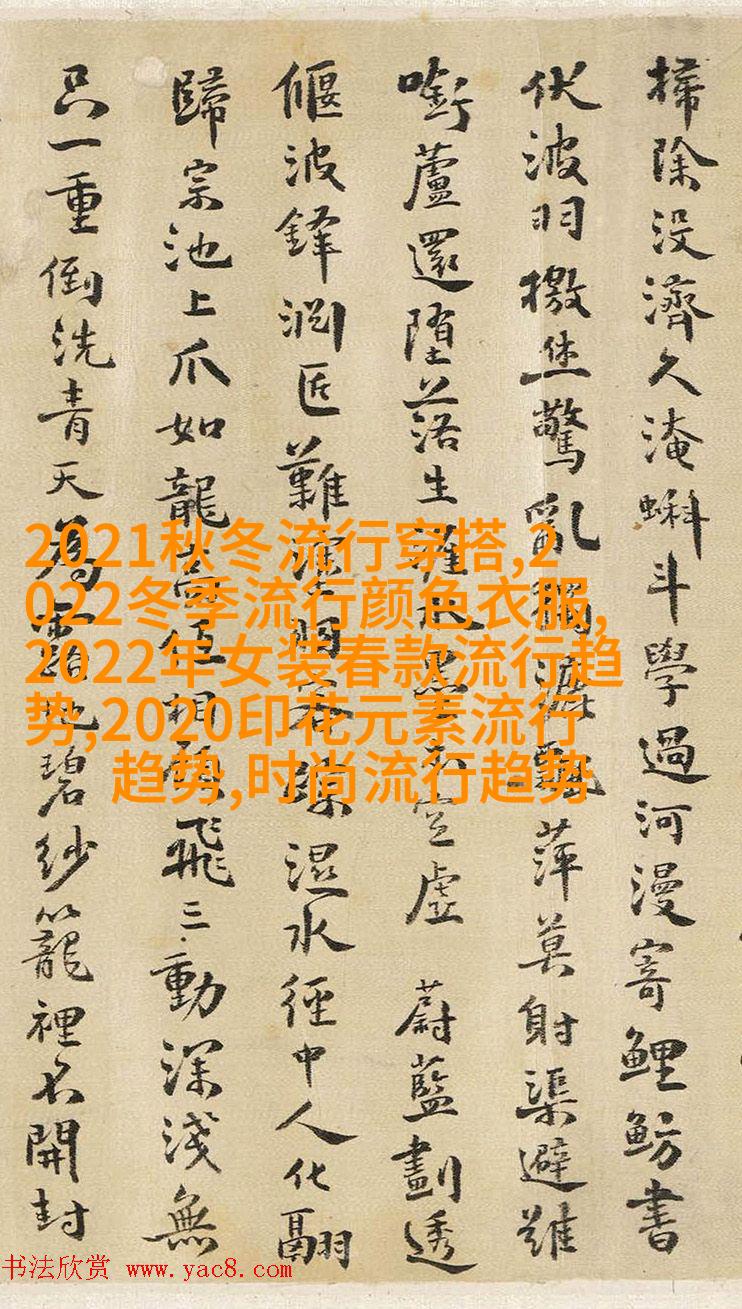 掃除没濟久淹蝌斗學過河漫寄鯉魴書
伏波羽檄驚亂萍莫射渠避難
啣蘆還墮落生空虛 蔚藍劃透
偃波鋒匠難濕水徑中人化翮
歸宗池上爪如龍相飛三動深淺無
只一重倒洗青天為地碧紗籠裡開封
2021秋冬流行穿搭,2
022冬季流行颜色衣服,
2022年女装春款流行趋
势,2020印花元素流行
趋势,时尚流行趋势
书法欣赏 www.yac8.com